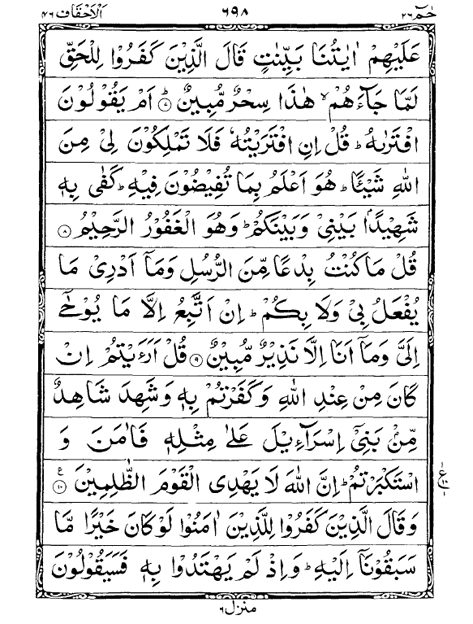 حٰمٓ ٢٦ ٦٩٨ اَلْاَحْقَاف ٤٦
عَلَيْهِمْ اٰيٰتُنَا بَيِّنٰتٍ قَالَ الَّذِيْنَ كَفَرُوْا لِلْحَقِّ
لَمَّا جَآءَهُمْ ۙ هٰذَا سِحْرٌ مُّبِيْنٌ ۞٧ اَمْ يَقُوْلُوْنَ
افْتَرٰىهُ ؕ قُلْ اِنِ افْتَرَيْتُهٗ فَلَا تَمْلِكُوْنَ لِيْ مِنَ
اللّٰهِ شَيْـًٔا ؕ هُوَ اَعْلَمُ بِمَا تُفِيْضُوْنَ فِيْهِ ؕ كَفٰى بِهٖ
شَهِيْدًۢا بَيْنِيْ وَبَيْنَكُمْ ؕ وَهُوَ الْغَفُوْرُ الرَّحِيْمُ ۞٨
قُلْ مَا كُنْتُ بِدْعًا مِّنَ الرُّسُلِ وَمَآ اَدْرِيْ مَا
يُفْعَلُ بِيْ وَلَا بِكُمْ ؕ اِنْ اَتَّبِعُ اِلَّا مَا يُوْحٰٓى
اِلَيَّ وَمَآ اَنَا اِلَّا نَذِيْرٌ مُّبِيْنٌ ۞٩ قُلْ اَرَءَيْتُمْ اِنْ
كَانَ مِنْ عِنْدِ اللّٰهِ وَكَفَرْتُمْ بِهٖ وَشَهِدَ شَاهِدٌ
مِّنْۢ بَنِيْٓ اِسْرَآءِيْلَ عَلٰى مِثْلِهٖ فَاٰمَنَ وَ
اسْتَكْبَرْتُمْ ؕ اِنَّ اللّٰهَ لَا يَهْدِي الْقَوْمَ الظّٰلِمِيْنَ ۞١٠ ع
وَقَالَ الَّذِيْنَ كَفَرُوْا لِلَّذِيْنَ اٰمَنُوْا لَوْ كَانَ خَيْرًا مَّا
سَبَقُوْنَآ اِلَيْهِ ؕ وَاِذْ لَمْ يَهْتَدُوْا بِهٖ فَسَيَقُوْلُوْنَ
منزل ٦